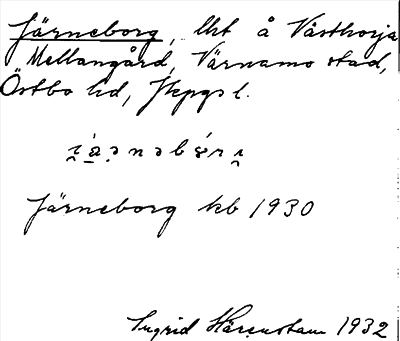 Järneborg, lht å Västhorja
Mellangård, Värnamo stad,
Östbo hd, Jkpgs l.
Järneborg kb 1930
Ingrid Härenstam 1932